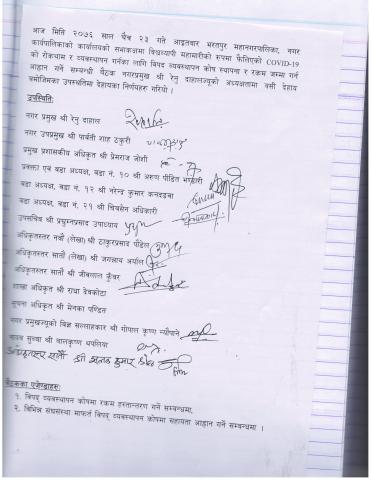 आज मिति २०७६ साल चैत्र २३ गते आइतवार भरतपुर महानगरपालिका, नगर
कार्यपालिकाको कार्यालयको सभाकक्षमा विश्वव्यापी महामारीको रुपमा फैलिएको COVID-19
को रोकथाम र व्यवस्थापन गर्नका लागि विपद व्यवस्थापन कोष स्थापना र रकम जम्मा गर्न
आह्वान गर्ने सम्बन्धी बैठक नगरप्रमुख श्री रेनु दाहालज्यूको अध्यक्षतामा बसी देहाय
बमोजिमका उपस्थितिमा देहायका निर्णयहरु गरियो ।
उपस्थितिः
नगर प्रमुख श्री रेनु दाहाल
नगर उपप्रमुख श्री पार्वती शाह ठकुरी
प्रमुख प्रशासकीय अधिकृत श्री प्रेमराज जोशी
प्रवक्ता एवं वडा अध्यक्ष, वडा नं. १० श्री अरुण पीडित भण्डारी
वडा अध्यक्ष, वडा नं. १२ श्री नरेन्द्र कुमार कनदङवा
वडा अध्यक्ष, वडा नं. २१ श्री चित्रसेन अधिकारी
उपसचिव श्री प्रद्युम्नप्रसाद उपाध्याय
अधिकृतस्तर नवौँ (लेखा) श्री ठाकुरप्रसाद पौडेल
अधिकृतस्तर सातौँ (लेखा) श्री जगन्नाथ अर्याल
अधिकृतस्तर सातौँ श्री जीवलाल कुँवर
शाखा अधिकृत श्री राधा देवकोटा
सूचना अधिकृत श्री मेनका पण्डित
नगर प्रमुखज्यूको विज्ञ सल्लाहकार श्री गोपाल कृष्ण न्यौपाने
नायव सुब्बा श्री बालकृष्ण थपलिया
सातौँ श्री कुमार
बैठकका एजेण्डाहरुः
१. विपद् व्यवस्थापन कोषमा रकम हस्तान्तरण गर्ने सम्बन्धमा,
२. विभिन्न संघसंस्था मार्फत विपद् व्यवस्थापन कोषमा सहायता आह्वान गर्ने सम्बन्धमा ।